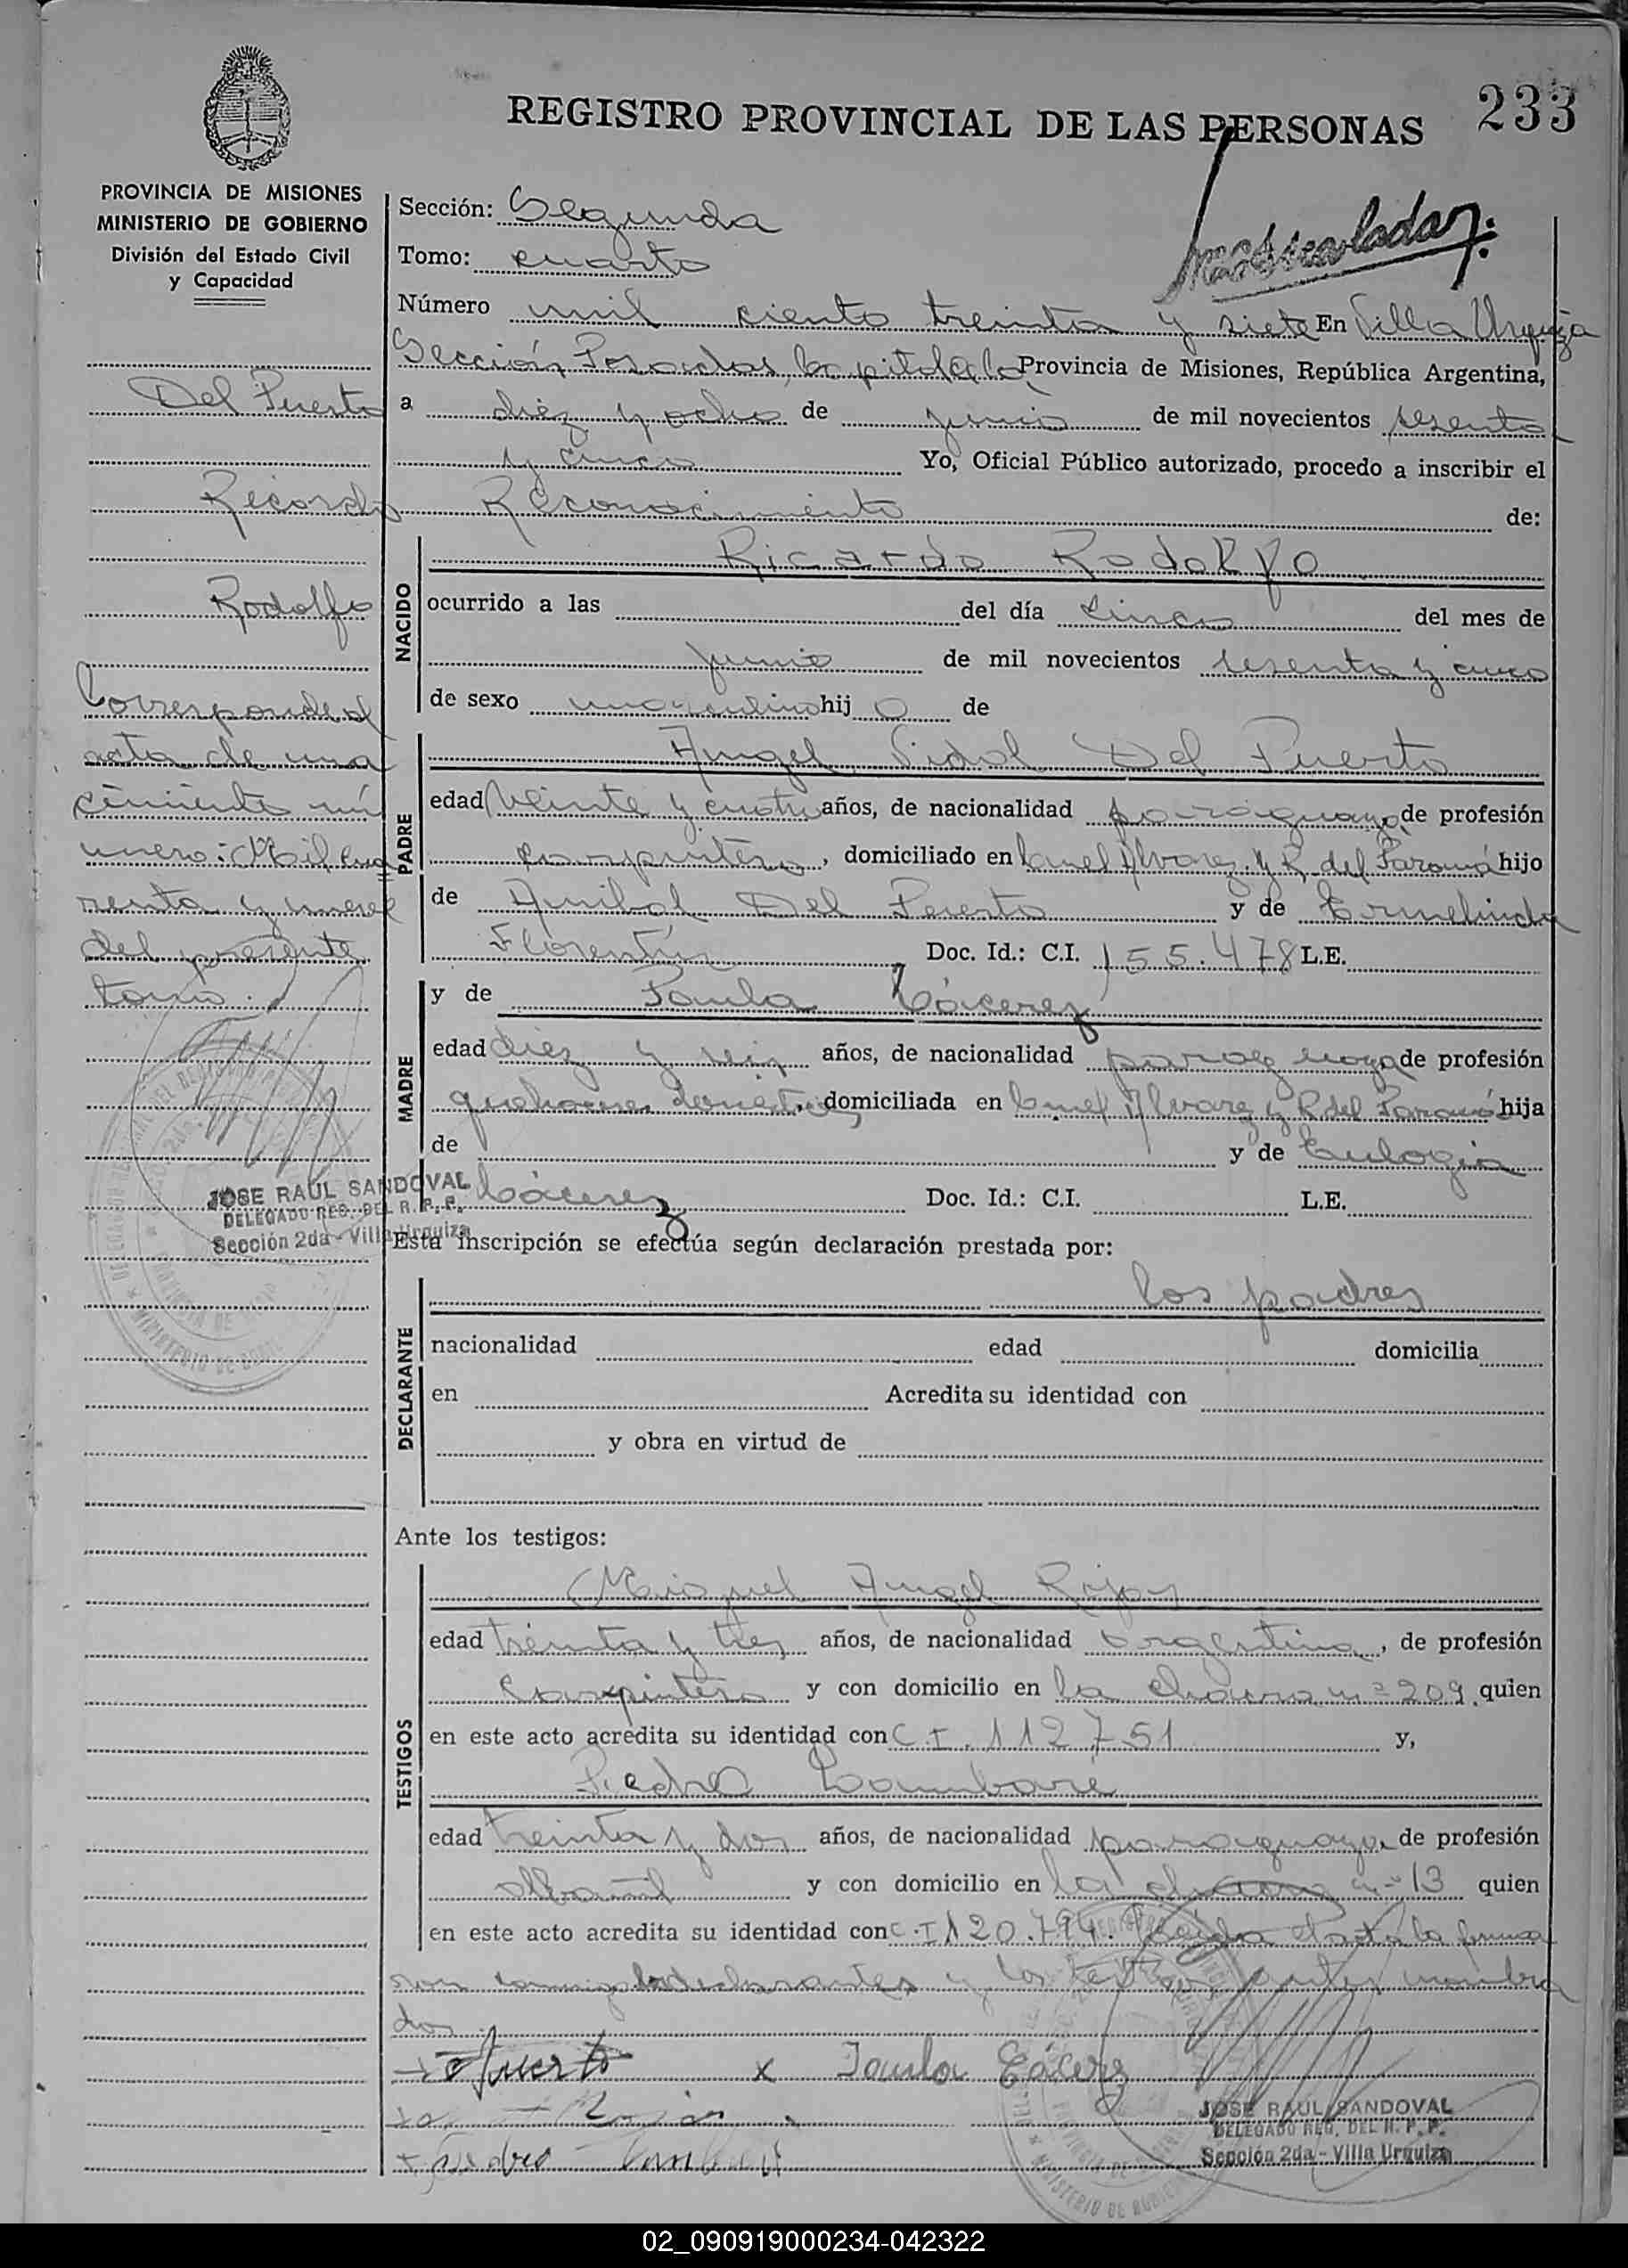 233
REGISTRO PROVINCIAL DE LAS PERSONAS
PROVINCIA DE MISIONES
MINISTERIO DE GOBIERNO
División del Estado Civil
y Capacidad
Del Puerto
Ricardo
Rodolfo
Corresponde al
acta de na
cimiento nú
mero: Mil cua
renta y nueve
del presente
tomo.
JOSE RAUL SANDOVAL
DELEGADO REG. DEL R. P. P.
Sección 2da - Villa Urquiza
Sección: Segunda
Tomo: cuarto
Número mil ciento treinta y siete En Villa Urquiza
Sección Posadas, Capital de la Provincia de Misiones, República Argentina,
a diez y ocho de junio de mil novecientos sesenta
y cinco Yo, Oficial Público autorizado, procedo a inscribir el
Reconocimiento de:
NACIDO
Ricardo Rodolfo
ocurrido a las del día cinco del mes de
junio de mil novecientos sesenta y cinco
de sexo masculino hij o de
PADRE
Angel Vidal Del Puerto
edad veinte y cuatro años, de nacionalidad paraguayo de profesión
carpintero, domiciliado en Cnel Alvarez y R. del Paraná hijo
de Anibal Del Puerto y de Ermelinda
Florentín Doc. Id.: C.I. 155.478 L.E.
MADRE
y de Paula Cácerez
edad diez y seis años, de nacionalidad paraguaya de profesión
quehaceres domésticos, domiciliada en Cnel Alvarez y R del Paraná hija
de y de Eulogia
Cácerez Doc. Id.: C.I. L.E.
Esta inscripción se efectúa según declaración prestada por:
DECLARANTE
los padres
nacionalidad edad domicilia
en Acredita su identidad con
y obra en virtud de
Ante los testigos:
TESTIGOS
Miguel Angel Rojas
edad treinta y tres años, de nacionalidad argentina, de profesión
carpintero y con domicilio en la chacra nº 209 quien
en este acto acredita su identidad con C.I. 112751 y,
Piedro Lambaré
edad treinta y dos años, de nacionalidad paraguaya, de profesión
albañil y con domicilio en la chacra nº 13 quien
en este acto acredita su identidad con C.I 120.794. Leída el acta la firma
ron conmigo los declarantes y los testigos antes nombra
dos
x Paula Cácerz
JOSE RAUL SANDOVAL
DELEGADO REG. DEL R. P. P.
Sección 2da - Villa Urquiza
02_090919000234-042322